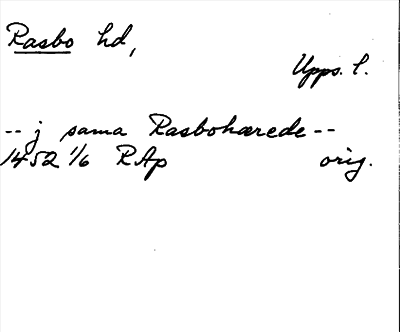 Rasbo hd,
Upps. l.
-- j sama Rasbohærede --
1452 1/6 RAp orig.